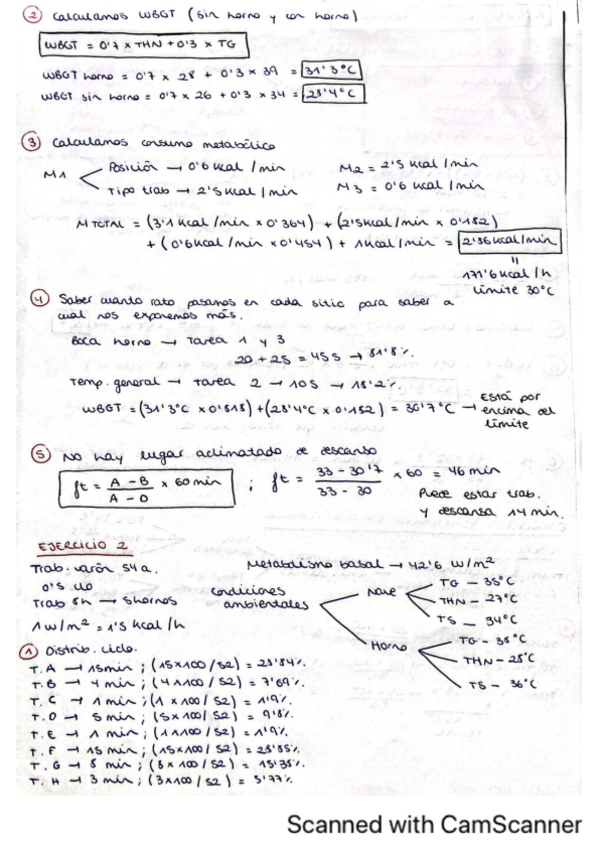 ② Calculamos WBGT (sin horno y con horno)
WBGT = 0'7 x THN + 0'3 x TG
WBGT horno = 0'7 x 28 + 0'3 x 39 = 31'3°C
WBGT sin horno = 0'7 x 26 + 0'3 x 34 = 28'4°C
③ Calculamos consumo metabólico
M1
Posición → 0'6 kcal/min
Tipo trab → 2'5 kcal/min
M2 = 2'5 kcal/min
M3 = 0'6 kcal/min
MTOTAL = (3'1 kcal/min x 0'364) + (2'5kcal/min x 0'182)
+ (0'6kcal/min x 0'454) + 1kcal/min = 2'86kcal/min
"
171'6 kcal/h
límite 30°C
④ Saber cuanto rato pasamos en cada sitio para saber a
cual nos exponemos más.
Boca horno → Tarea 1 y 3
20 + 25 = 45 s → 81'8%
Temp. general → Tarea 2 → 10 s → 18'2%
WBGT = (31'3°C x 0'818) + (28'4°C x 0'182) = 30'7°C → Está por
encima del
límite
⑤ No hay lugar aclimatado de descanso
ft = A - B / A - D x 60 min ; ft = 33 - 30'7 / 33 - 30 x 60 = 46 min
Puede estar trab.
y descansa 14 min.
EJERCICIO 2
Trab. varón 54 a.
0'5 clo
Trab 8h → 5 hornos
1 w/m² = 1'5 kcal/h
Metabolismo basal → 42'6 w/m²
Condiciones
ambientales
Nave
TG - 35°C
THN - 27°C
TS - 34°C
Horno
TG - 38°C
THN - 28°C
TS - 36°C
① Distrib. ciclo.
T.A → 15min ; (15x100/52) = 28'84%
T.B → 4 min ; (4x100/52) = 7'69%
T.C → 1 min ; (1x100/52) = 1'9%
T.D → 5 min ; (5x100/52) = 9'8%
T.E → 1 min ; (1x100/52) = 1'9%
T.F → 15 min ; (15x100/52) = 28'85%
T.G → 8 min ; (8x100/52) = 15'38%
T.H → 3 min ; (3x100/52) = 5'77%
Scanned with CamScanner